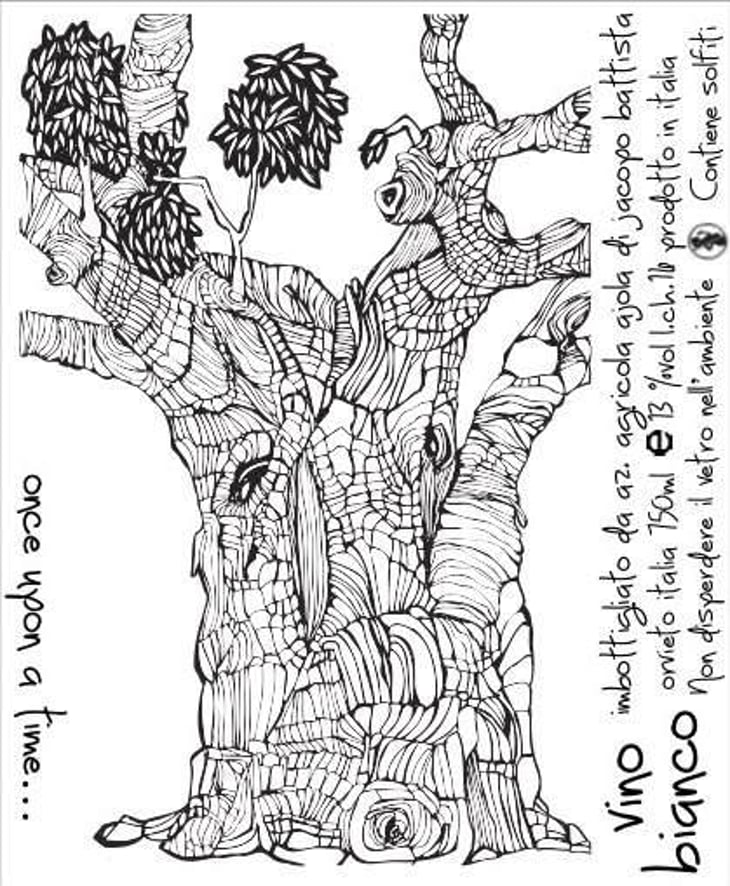 once upon a time...
vino
bianco
imbottigliato da az. agricola ajola di jacopo battista
orvieto italia 750ml e 13 %vol l.ch.1b prodotto in italia
Non disperdere il vetro nell'ambiente Contiene solfiti